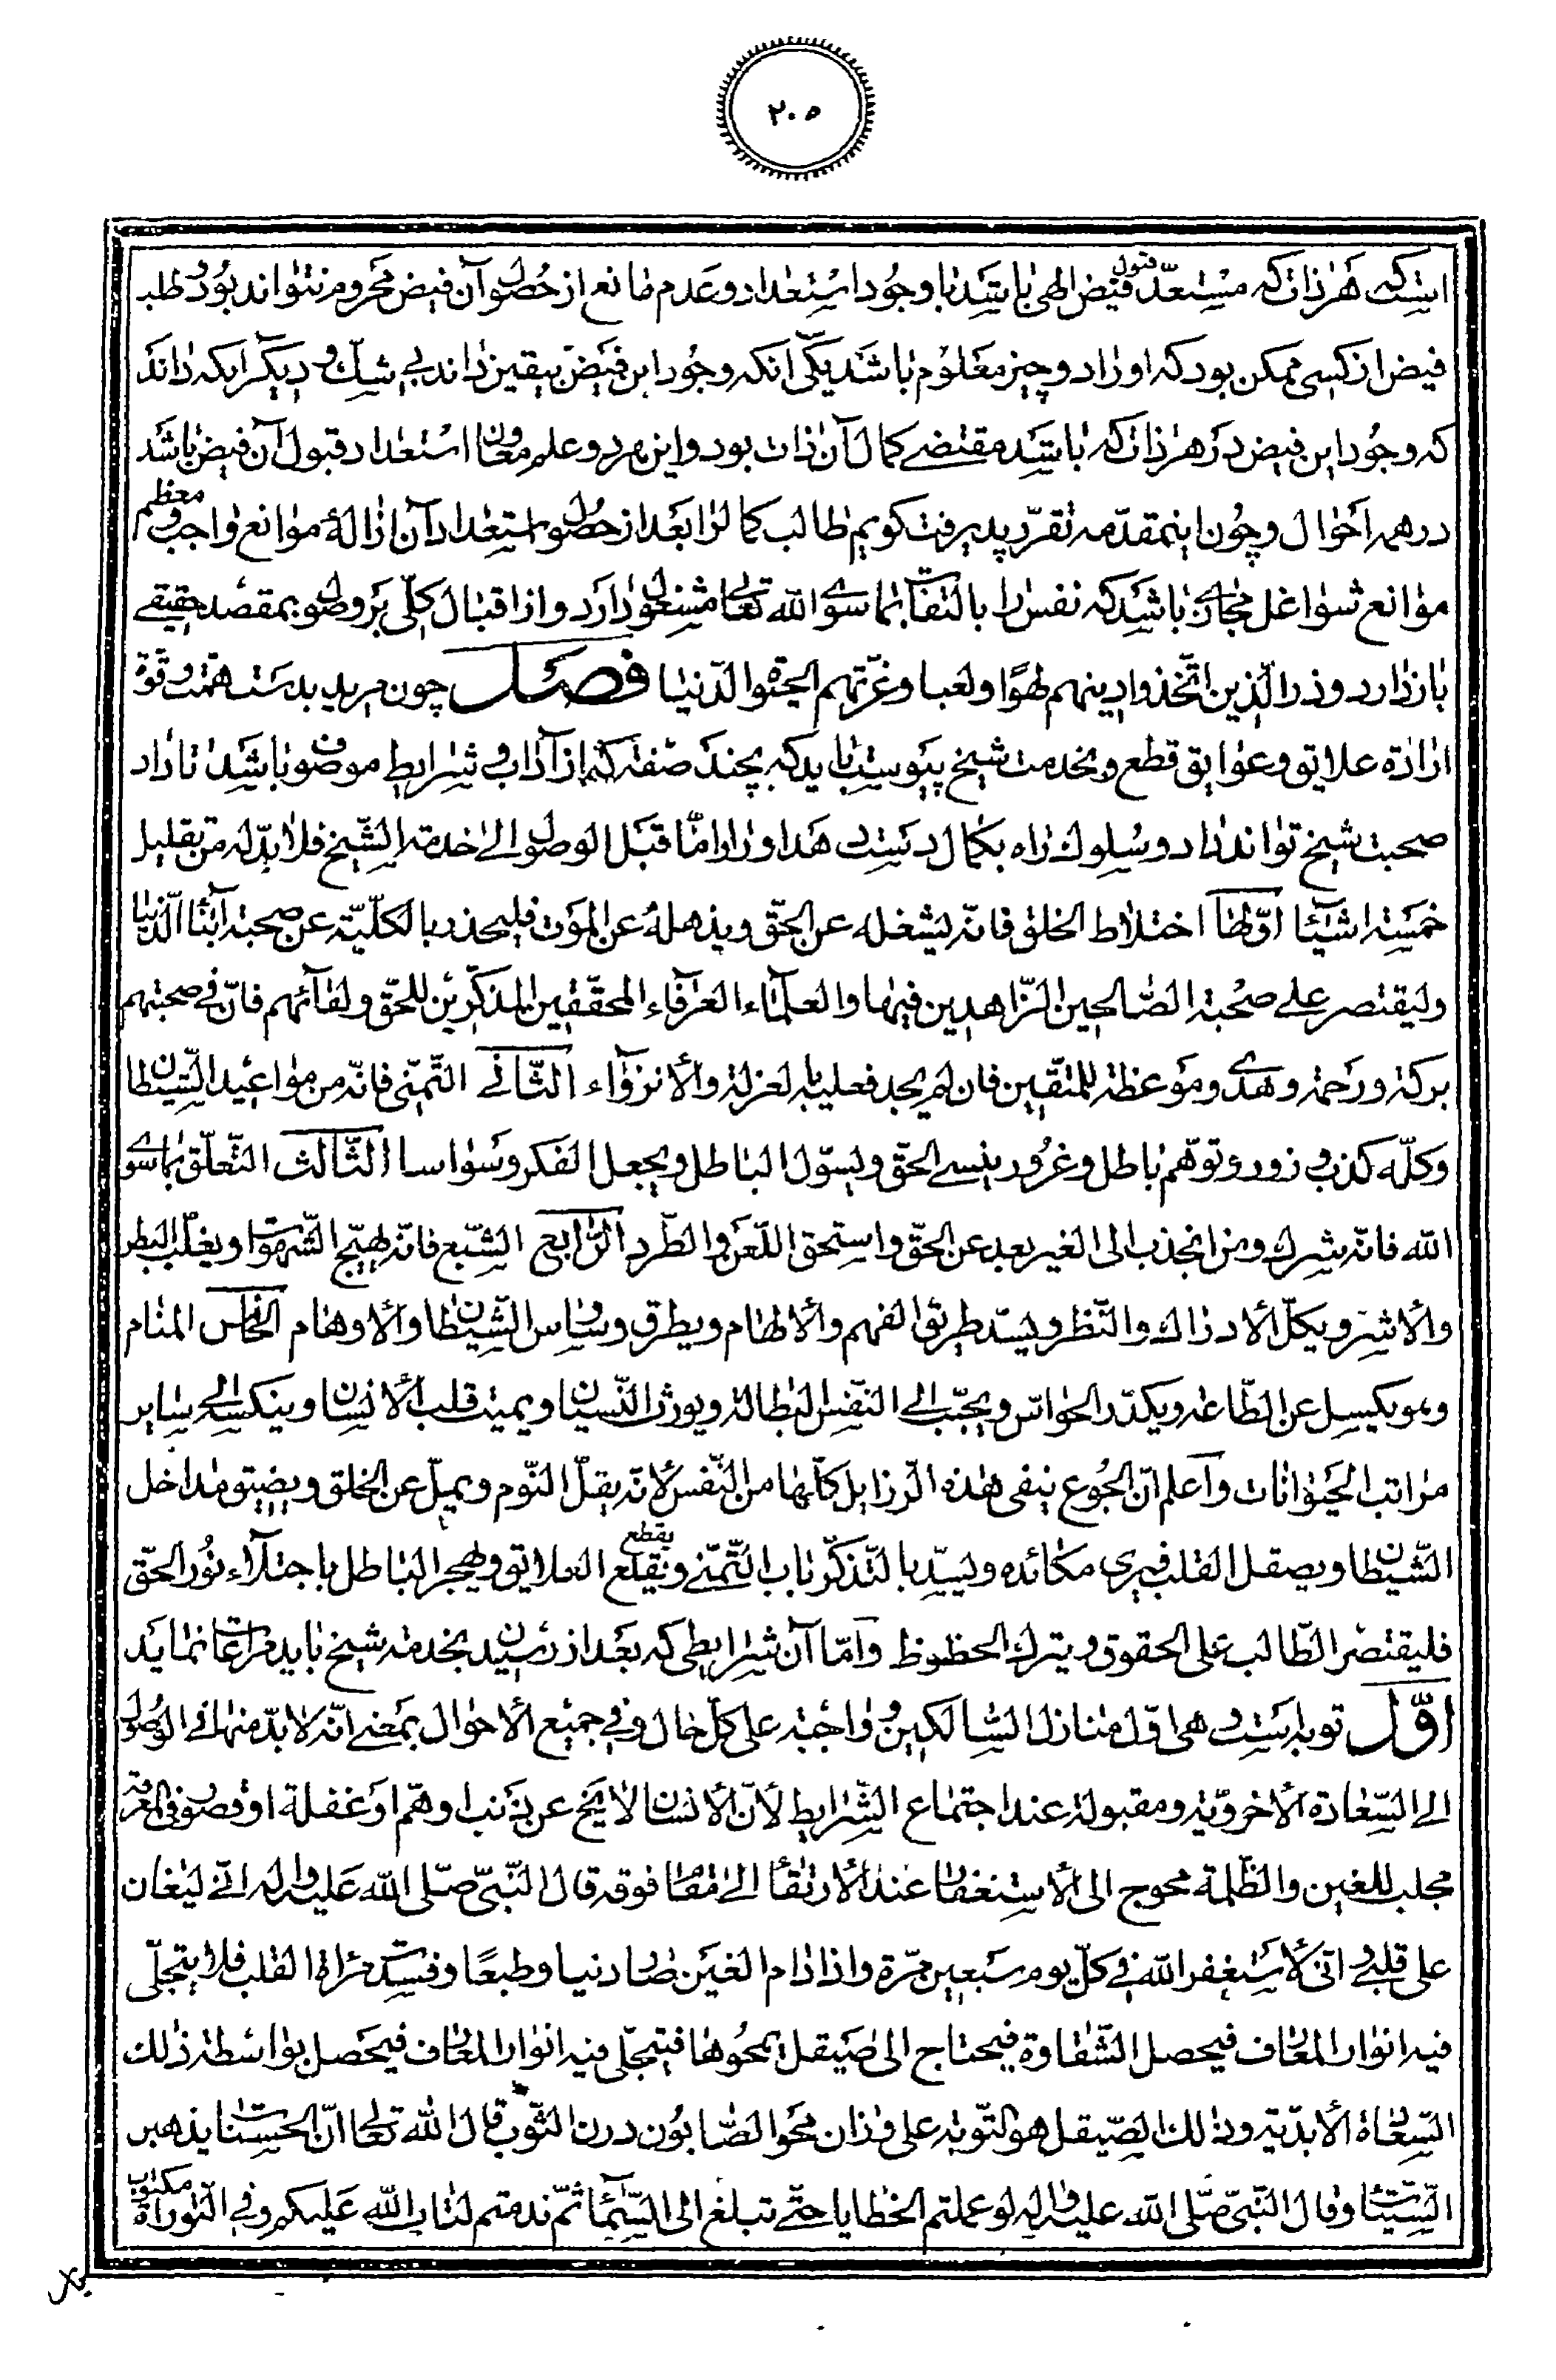 ٢٠٥
اینست که هر ذات که مستعدّ قبول فیض الهی باشد با وجود استعداد و عدم مانع از حصول آن فیض محروم نتواند بود و طلب
فیض از کسی ممکن بود که او را دو چیز معلوم باشد یکی آنکه وجود این فیض بیقین داند بی شک و دیگر آنکه داند
که وجود این فیض در هر ذات که باشد مقتضی کمال آن ذات بود و این هر دو علم مقارن استعداد قبول آن فیض باشد
در همه احوال و چون اینمقدّمه تقرّر پذیرفت گویم طالب کمال را بعد از حصول استعداد آن ازالهٔ موانع واجب و معظم
موانع شواغل مجازی باشد که نفس را بالتفات بما سوی الله تعالی مشغول دارد و از اقبال کلّی بر وصول بمقصد حقیقی
باز دارد و ذر الّذین اتّخذوا دینهم لهوًا و لعبا و غرّتهم الحیٰوة الدّنیا فصل چون مرید بدست همّت و قوّة
ارادة علایق و عوایق قطع و بخدمت شیخ پیوست باید که بچند صفت کند از آداب و شرایط موصوف باشد تا داد
صحبت شیخ تواند داد و سلوک راه بکمال دست دهد او را امّا قبل الوصول الی خدمة الشّیخ فلا بدّ له من تقلیل
خمسة اشیآء اوّلها اختلاط الخلق فانّه یشغله عن الحقّ و یذهله عن الموت فلیحذر بالکلّیّة عن صحبة ابنآء الدّنیا
و لیقتصر علی صحبة الصّالحین الزّاهدین فیها و العلمآء العرفآء المحقّقین المذکّرین للحقّ و لقآئهم فانّ فی صحبتهم
برکة و رحمة و هدی و موعظة للمتّقین فان لم یجد فعلیه بالعزلة و الانزوآء الثّانی التّمنّی فانّه من مواعید الشّیطان
و کلّه کذب و زور و توهّم باطل و غرور ینسی الحقّ و یسوّل الباطل و یجعل الفکر وسواسا الثّالث التّعلّق بما سوی
الله فانّه شرک و من انجذب الی الغیر بعد عن الحقّ و استحق اللّعن و الطّرد الرّابع الشّبع فانّه یهیّج الشّهوات و یغلّب البطر
و الاشر و یکلّ الادراک و النّظر و یسدّ طریق الفهم و الالهام و یطرق وساوس الشّیطان و الاوهام الخامس المنام
و هو یکسل عن الطّاعة و یکدّر الحواسّ و یحبّب الی النّفس البطالة و یورث النّسیان و یمیت قلب الانسان و ینکسه الی سایر
مراتب الحیوانات و اعلم انّ الجوع ینفی هذه الرّذایل کلّها من النّفس لانّه یقلّ النّوم و یمیل عن الخلق و یضیق مداخل
الشّیطان و یصقل القلب فیری مکائده و یسدّ بالتّذکّر باب التّمنّی و یقلع یقطع العلایق و یهجر الباطل باجتلآء نور الحقّ
فلیقتصر الطّالب علی الحقوق و یترک الحظوظ و امّا آن شرایطی که بعد از رسیدن بخدمة شیخ باید مراعات نماید
اوّل توبه است و هی اوّل منازل السّالکین و واجبة علی کلّ حال و فی جمیع الاحوال بمعنی انّه لا بدّ منها فی الوصول
الی السّعادة الاخرویّة و مقبولة عند اجتماع الشّرایط لانّ الانسان لا یخ عن ذنب او همّ او غفلة او قصور فی المعرفة
مجلب للغین و الظّلمة محوج الی الاستغفار عند الارتقاء الی مقام فوقه قال النّبیّ صلّی الله علیه و اله انّی لیغان
علی قلبی و انّی لاستغفر الله فی کلّ یوم سبعین مرّة و اذا دام الغین صار دنیا و طبعًا و فسدت مرآة القلب فلا یتجلّی
فیه انوار المعارف فیحصل الشّقاوة فیحتاج الی صیقل یمحوها فیتجلّی فیه انوار المعارف فیحصل بواسطة ذلک
السّعادة الابدّیّة و ذلک الصّیقل هو التّوبة علی وزان محو الصّابون درن الثّوب قال الله تعالی انّ الحسنات یذهبن
السّیّئات و قال النّبیّ صلّی الله علیه و اله لو عملتم الخطایا حتّی تبلغ الی السّمآء ثمّ ندمتم لتاب الله علیکم و فی التّوراة مکتوب